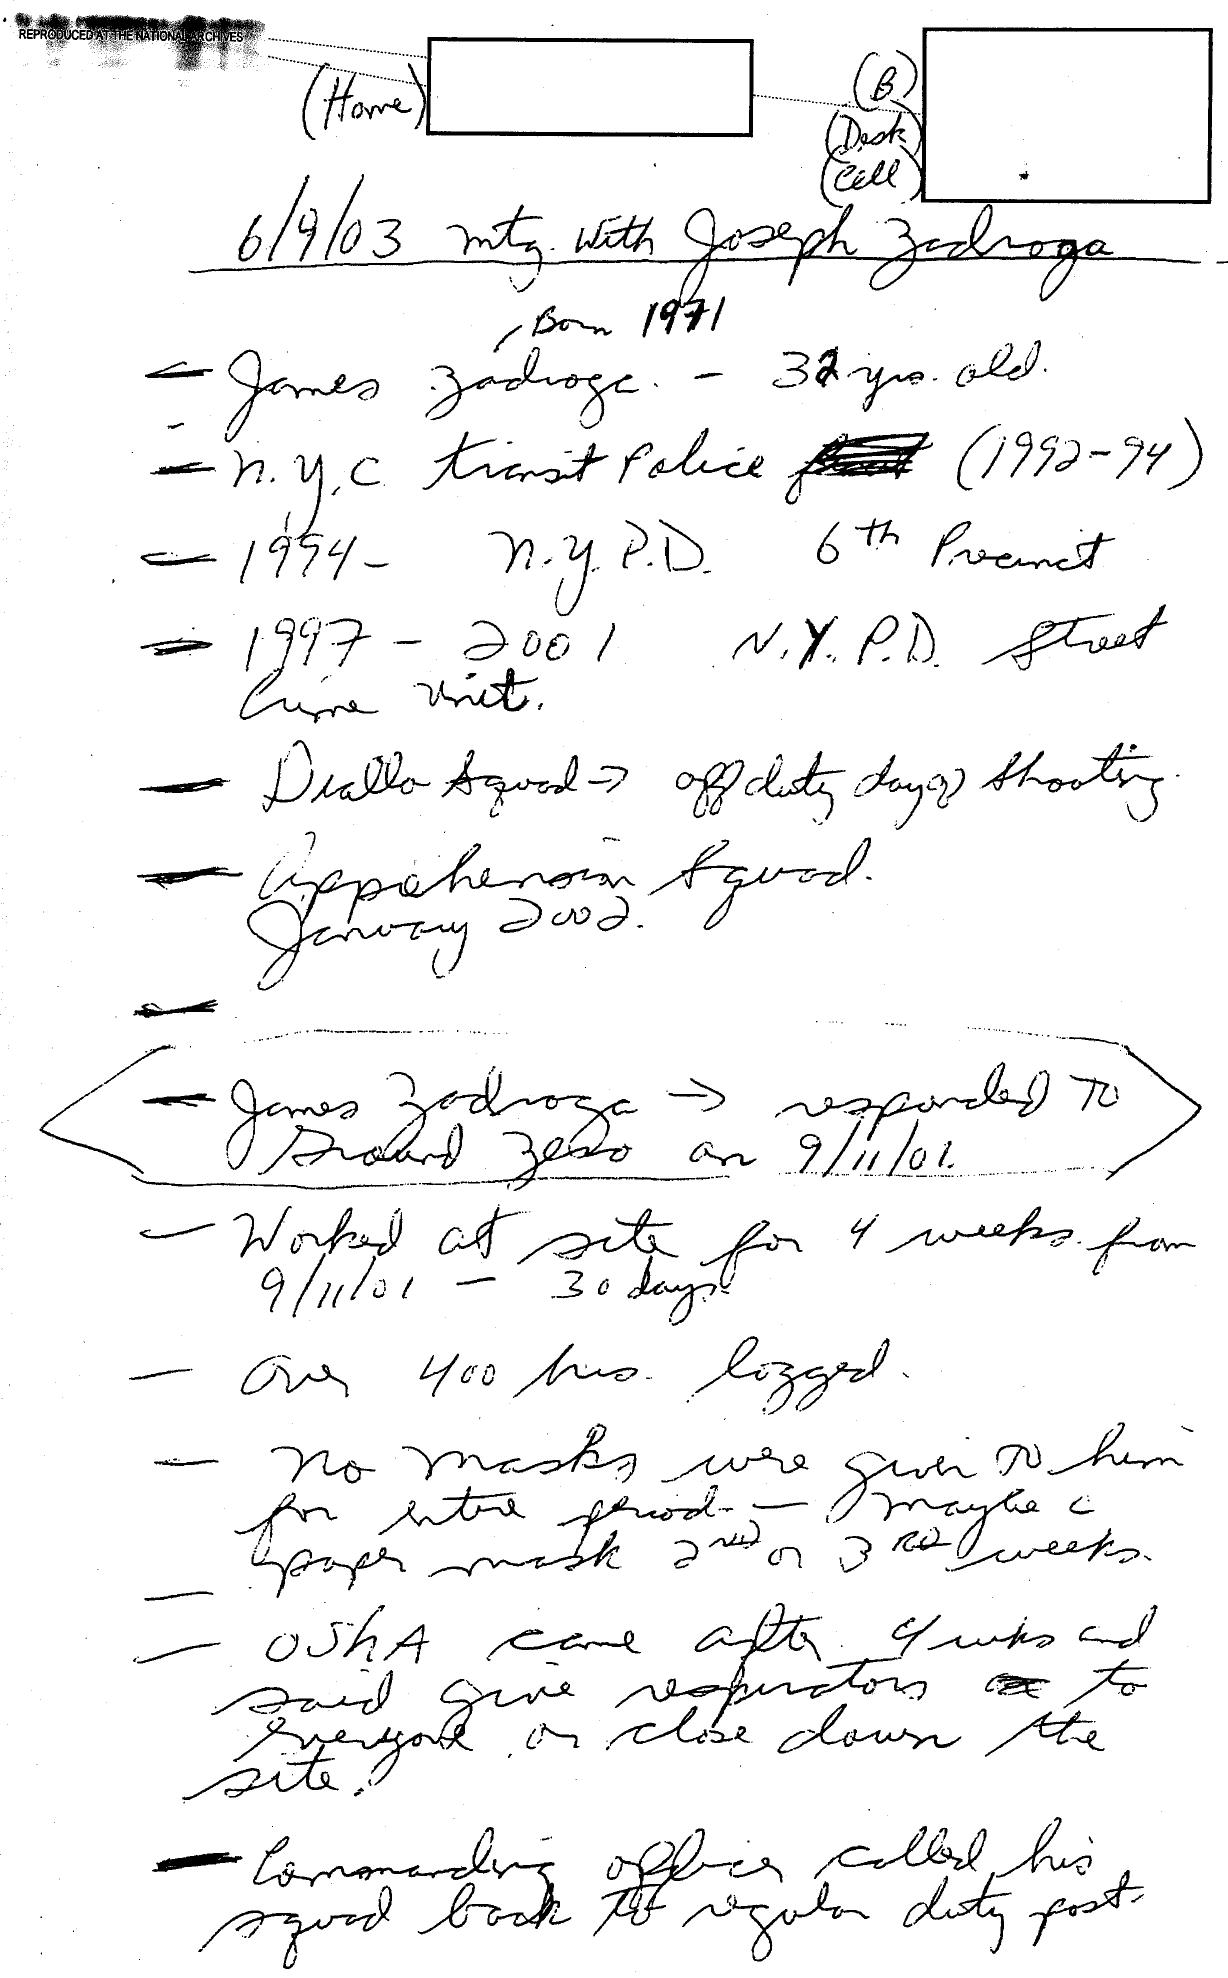 REPRODUCED AT THE NATIONAL ARCHIVES
(Home)
(B)
(Desk)
(Cell)
6/9/03 mtg. with Joseph Zadroga
Born 1971
- James Zadroga. - 32 yrs. old.
- N.Y.C transit Police (1992-94)
- 1994- N.Y.P.D. 6th Precinct
- 1997 - 2001 N.Y.P.D. Street
Crime Unit.
- Diallo Squad → off duty day of shooting.
- Apprehension Squad.
January 2002.
-
- James Zadroga → responded to
Ground Zero on 9/11/01.
- Worked at site for 4 weeks from
9/11/01 - 30 days.
- Over 400 hrs. logged.
- No masks were given to him
for entire period - maybe a
paper mask 2nd or 3rd weeks.
-
- OSHA came after 4 wks and
said give respirators to
everyone or close down the
site.
- Commanding officer called his
squad back to regular duty post.